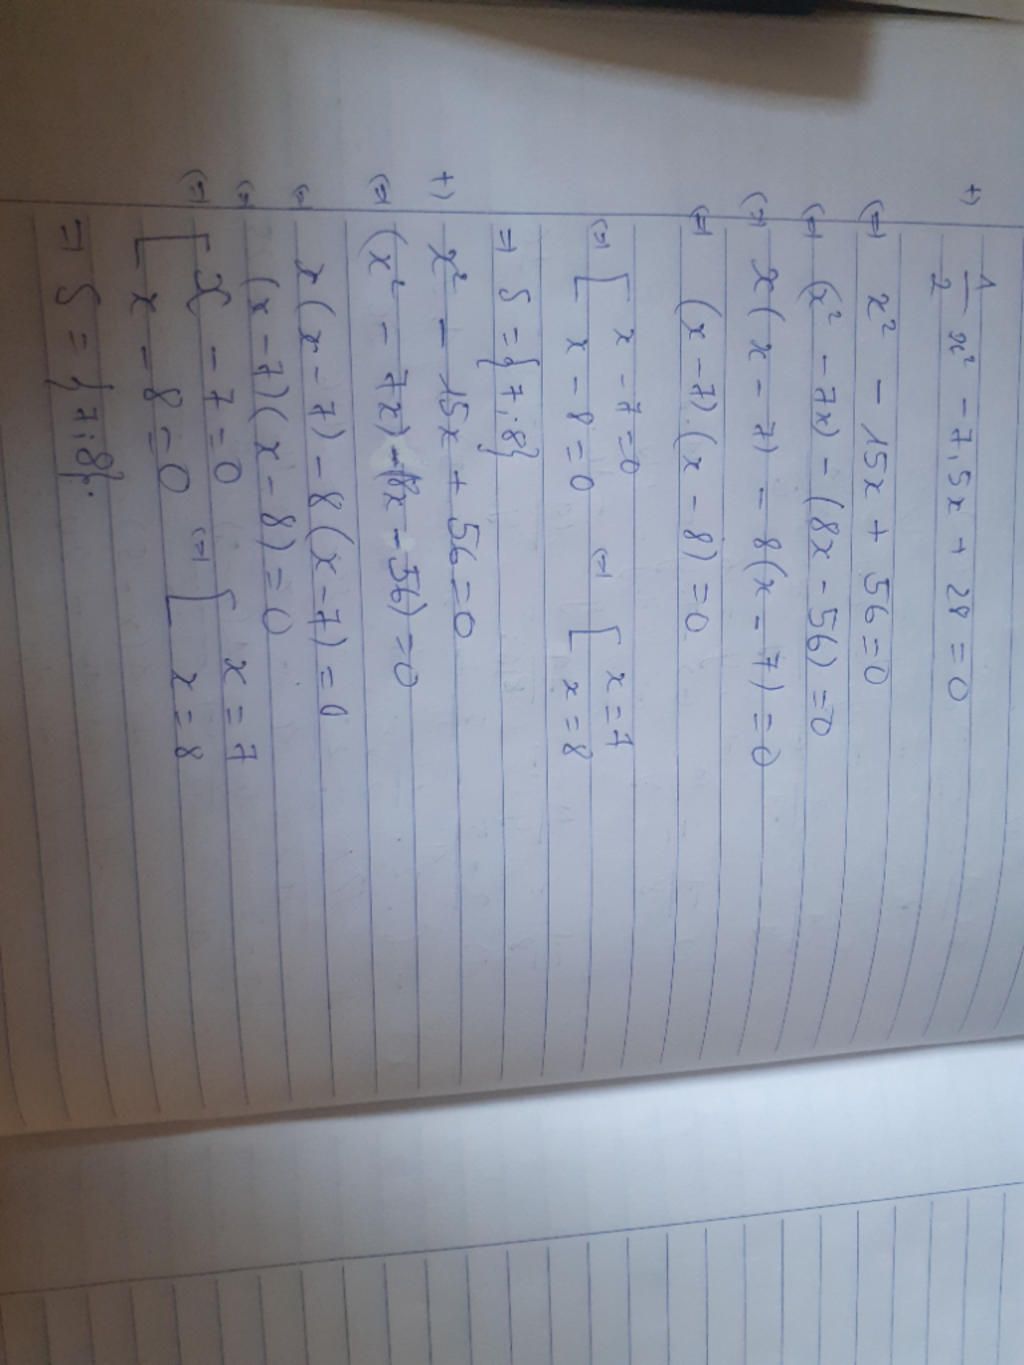 +) 1/2 x² - 7,5x + 28 = 0
(=) x² - 15x + 56 = 0
(=) (x² - 7x) - (8x - 56) = 0
(=) x(x - 7) - 8(x - 7) = 0
(=) (x - 7).(x - 8) = 0
(=) [ x - 7 = 0 (=) [ x = 7
x - 8 = 0 x = 8
=) S = {7.8}
+) x² - 15x + 56 = 0
(=) (x² - 7x) - (8x - 56) = 0
(=) x(x - 7) - 8(x - 7) = 0
(=) (x - 7)(x - 8) = 0
(=) [ x - 7 = 0 (=) [ x = 7
x - 8 = 0 x = 8
=) S = {7;8}.